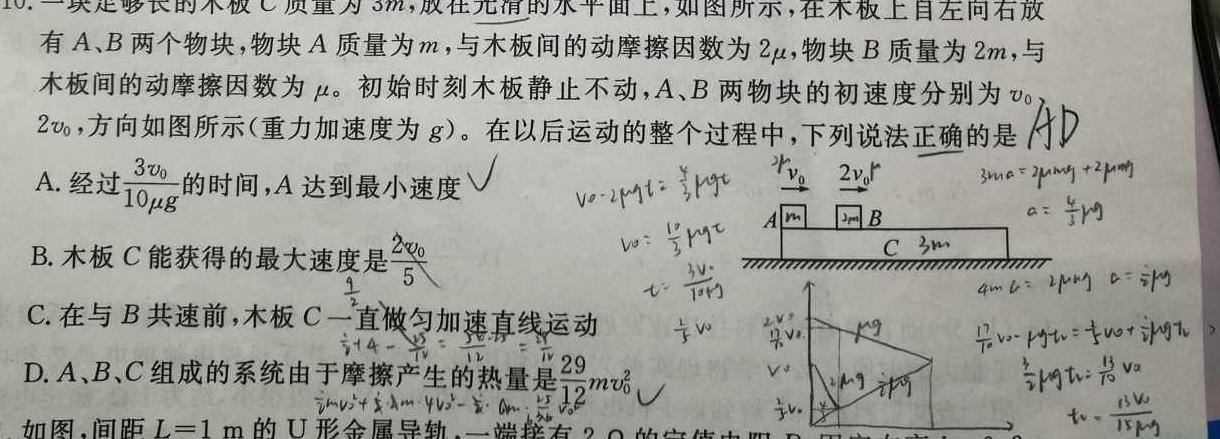 10. 一块足够长的木板 C 质量为 3m,放在光滑的水平面上,如图所示,在木板上自左向右放
有 A、B 两个物块,物块 A 质量为 m,与木板间的动摩擦因数为 2μ,物块 B 质量为 2m,与
木板间的动摩擦因数为 μ。初始时刻木板静止不动,A、B 两物块的初速度分别为 v₀、
2v₀,方向如图所示(重力加速度为 g)。在以后运动的整个过程中,下列说法正确的是 AD
A. 经过3v₀/10μg的时间,A 达到最小速度 ✓
B. 木板 C 能获得的最大速度是2v₀/5
C. 在与 B 共速前,木板 C 一直做匀加速直线运动
D. A、B、C 组成的系统由于摩擦产生的热量是29/12 mv₀² ✓
v₀-2μgt=4/3 μgt
v₀=10/3 μgt
t=3v₀/10μg
2μ v₀ 2v₀ μ
A m 2m B
C 3m
3ma=2μmg+2μmg
a=4/3 μg
4ma=2μmg a=1/2 μg
17/10 v₀-μgt₂=2/5 v₀+1/2 μgt₂
3/2 μgt₂=13/10 v₀
t₂=13v₀/15μg
2v₀
17/10 v₀
v₀
μg
2μg
1/2 μg
如图,间距 L=1 m 的 U 形金属导轨,一端接有